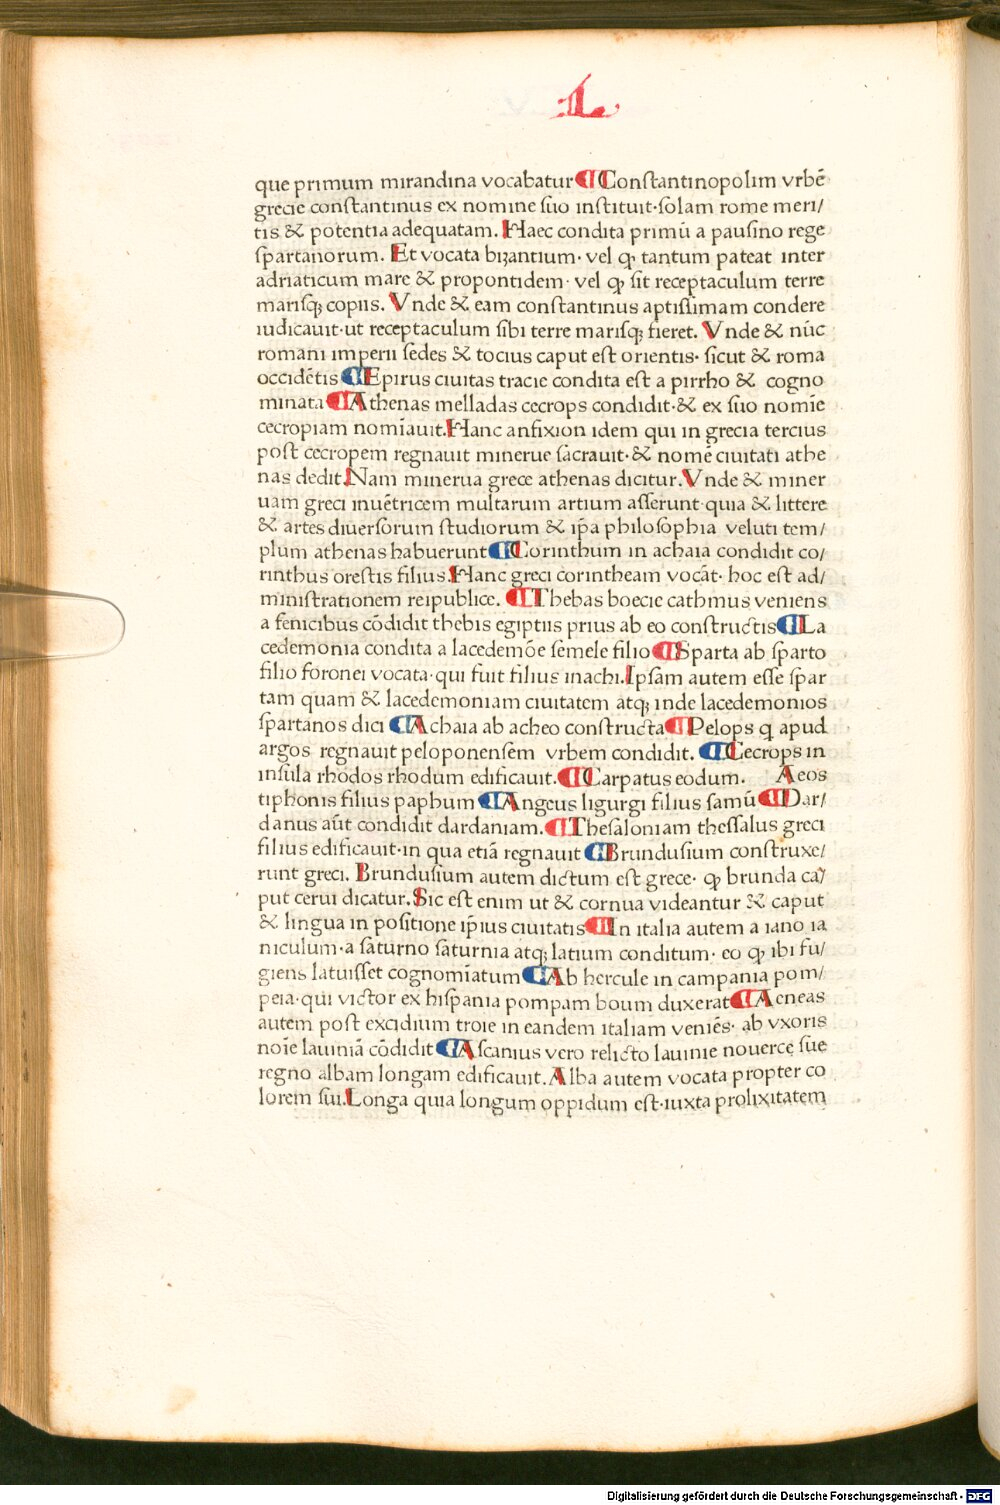 ·L·
que primum mirandina vocabatur ¶ Constantinopolim vrbē
grecie constantinus ex nomine suo instituit·solam rome meri/
tis & potentia adequatam. Haec condita primū a pausino rege
spartanorum. Et vocata biȝantium· vel ꝙ tantum pateat inter
adriaticum mare & propontidem· vel ꝙ sit receptaculum terre
marisqꝫ copiis. Vnde & eam constantinus aptissimam condere
iudicauit·ut receptaculum sibi terre marisqꝫ fieret. Vnde & nūc
romani imperii sedes & tocius caput est orientis· sicut & roma
occidētis ¶ Epirus ciuitas tracie condita est a pirrho & cogno
minata ¶ Athenas melladas cecrops condidit·& ex suo nomīe
cecropiam nomīauit. Hanc anfixion idem qui in grecia tercius
post cecropem regnauit minerue sacrauit·& nomē ciuitati athe
nas dedit. Nam minerua grece athenas dicitur. Vnde & miner
uam greci inuētricem multarum artium asserunt·quia & littere
& artes diuersorum studiorum & ip̄a philosophia veluti tem/
plum athenas habuerunt ¶ Corinthum in achaia condidit co/
rinthus orestis filius. Hanc greci corintheam vocāt· hoc est ad/
ministrationem reipublice. ¶ Thebas boecie cathmus veniens
a fenicibus cōdidit thebis egiptiis prius ab eo constructis ¶ La
cedemonia condita a lacedemōe semele filio ¶ Sparta ab sparto
filio foronei vocata·qui fuit filius inachi. Ipsam autem esse spar
tam quam & lacedemoniam ciuitatem atqꝫ inde lacedemonios
spartanos dici ¶ Achaia ab acheo constructa ¶ Pelops q apud
argos regnauit peloponensem vrbem condidit. ¶ Cecrops in
insula rhodos rhodum edificauit. ¶ Carpatus eodum. Aeos
tiphonis filius paphum ¶ Angeus ligurgi filius samū ¶ Dar/
danus aūt condidit dardaniam. ¶ Thesaloniam thessalus greci
filius edificauit·in qua etiā regnauit ¶ Brundusium construxe/
runt greci. Brundusium autem dictum est grece· ꝙ brunda ca/
put cerui dicatur. Sic est enim ut & cornua videantur & caput
& lingua in positione ip̄ius ciuitatis ¶ In italia autem a iano ia
niculum·a saturno saturnia atqꝫ latium conditum· eo ꝙ ibi fu/
giens latuisset cognomīatum ¶ Ab hercule in campania pom/
peia·qui victor ex hispania pompam boum duxerat ¶ Aeneas
autem post excidium troie in eandem italiam veniēs· ab vxoris
noīe lauiniā cōdidit ¶ Ascanius vero relicto lauinie nouerce sue
regno albam longam edificauit. Alba autem vocata propter co
lorem sui. Longa quia longum oppidum est·iuxta prolixitatem
Digitalisierung gefördert durch die Deutsche Forschungsgemeinschaft - DFG